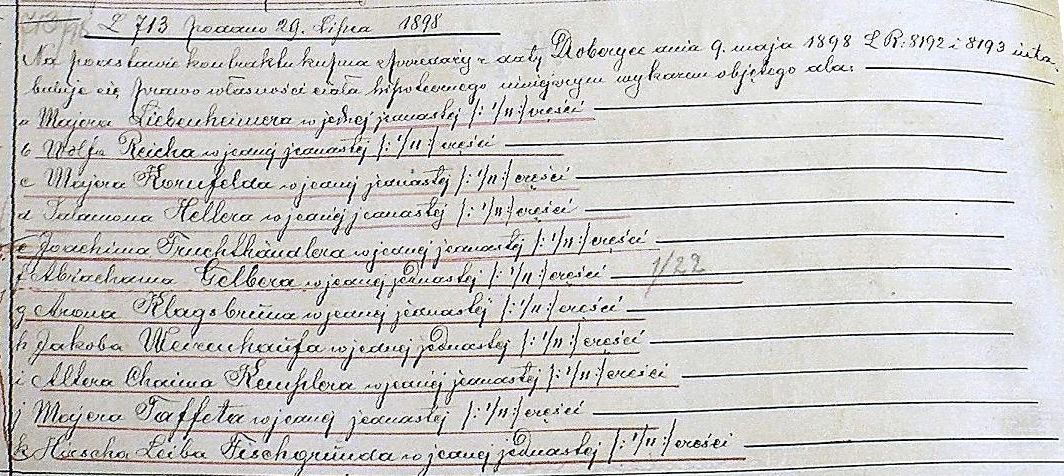 L 713 podano 29. Lipca 1898
Na podstawie kontraktu kupna sprzedaży z daty Dobczyce dnia 9. maja 1898 L R: 8192 i 8193 inta-
buluje się prawo własności ciała hipotecznego niniejszym wykazem objętego dla:
a Majera Liebenheimera w jednej jedenastej /: 1/11 :/ części
b Wolfa Reicha w jednej jedenastej /: 1/11 :/ części
c Majera Kornfelda w jednej jedenastej /: 1/11 :/ części
d Salamona Hellera w jednej jedenastej /: 1/11 :/ części
e Joachima Fruchthändlera w jednej jedenastej /: 1/11 :/ części
f Abrachama Gelbera w jednej jedenastej /: 1/11 :/ części 1/22
g Arona Klagsbruna w jednej jedenastej /: 1/11 :/ części
h Jakoba w jednej jedenastej /: 1/11 :/ części
i Altera Chaima Kemplera w jednej jedenastej /: 1/11 :/ części
j Majera Taffeta w jednej jedenastej /: 1/11 :/ części
k Hirscha Leiba Fischgrunda w jednej jedenastej /: 1/11 :/ części